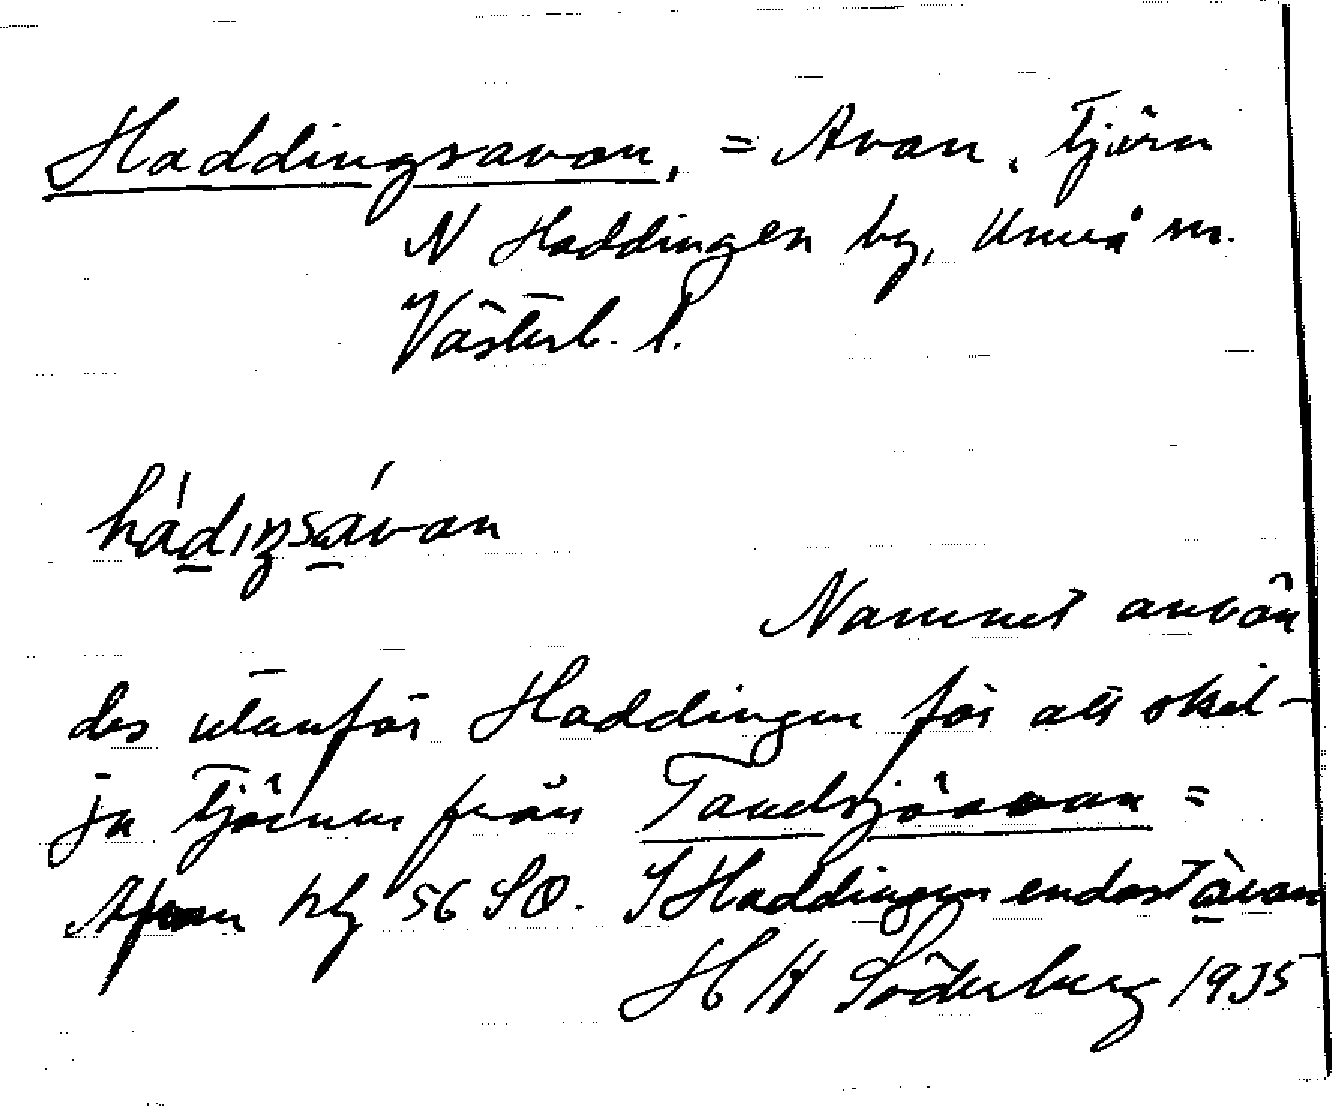 Haddingsavan, = Avan, tjärn
N Haddingen by, Umeå sn.
Västerb. l.
hádıŋsávan
Namnet använ
des utanför Haddingen för att skil-
ja tjärnen från Tandsjöavan =
Afvan hg 56 SO. I Haddingen endast àvan
H H Söderberg 1935